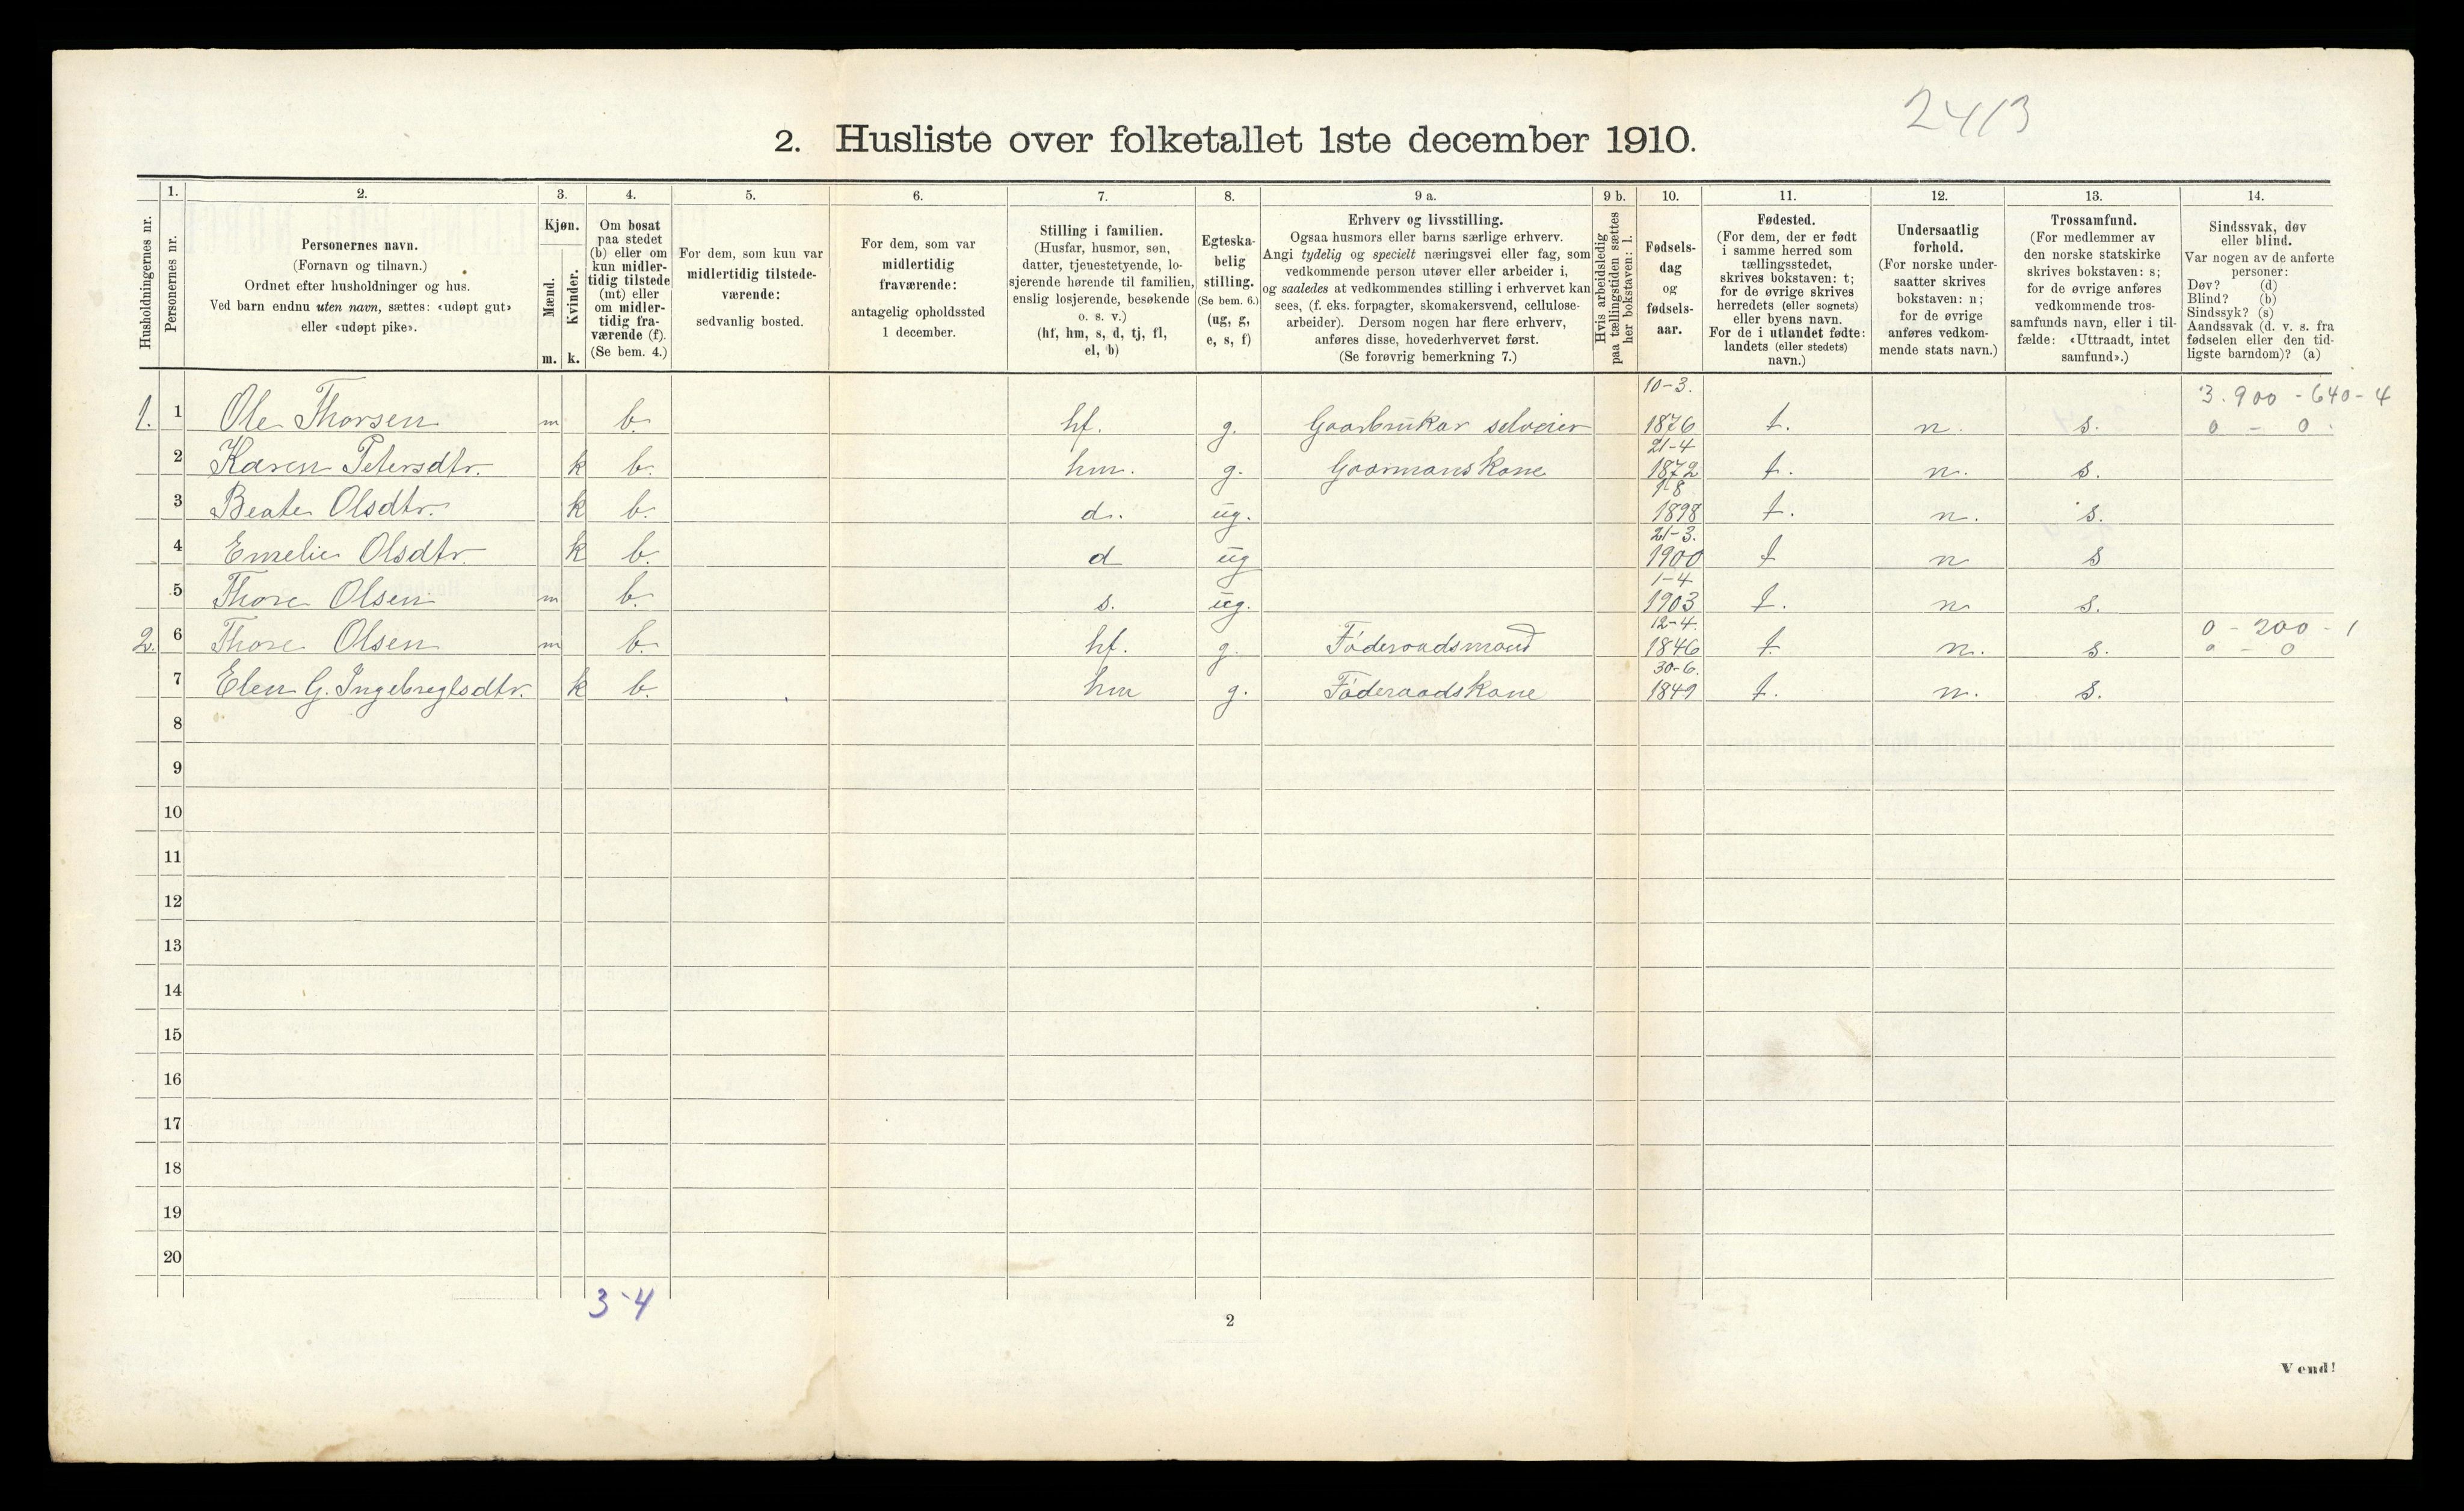 2413
2. Husliste over folketallet 1ste december 1910.
Husholdningernes nr.
1.
Personernes nr.
2.
Personernes navn.
(Fornavn og tilnavn.)
Ordnet efter husholdninger og hus.
Ved barn endnu uten navn, sættes: «udøpt gut»
eller «udøpt pike».
3.
Kjøn.
Mænd.
m.
Kvinder.
k.
4.
Om bosat
paa stedet
(b) eller om
kun midler-
tidig tilstede
(mt) eller
om midler-
tidig fra-
værende (f).
(Se bem. 4.)
5.
For dem, som kun var
midlertidig tilstede-
værende:
sedvanlig bosted.
6.
For dem, som var
midlertidig
fraværende:
antagelig opholdssted
1 december.
7.
Stilling i familien.
(Husfar, husmor, søn,
datter, tjenestetyende, lo-
sjerende hørende til familien,
enslig losjerende, besøkende
o. s. v.)
(hf, hm, s, d, tj, fl,
el, b)
8.
Egteska-
belig
stilling.
(Se bem. 6.)
(ug, g,
e, s, f)
9 a.
Erhverv og livsstilling.
Ogsaa husmors eller barns særlige erhverv.
Angi tydelig og specielt næringsvei eller fag, som
vedkommende person utøver eller arbeider i,
og saaledes at vedkommendes stilling i erhvervet kan
sees, (f. eks. forpagter, skomakersvend, cellulose-
arbeider). Dersom nogen har flere erhverv,
anføres disse, hovederhvervet først.
(Se forøvrig bemerkning 7.)
9 b.
Hvis arbeidsledig
paa tællingstiden sættes
her bokstaven: l.
10.
Fødsels-
dag
og
fødsels-
aar.
11.
Fødested.
(For dem, der er født
i samme herred som
tællingsstedet,
skrives bokstaven: t;
for de øvrige skrives
herredets (eller sognets)
eller byens navn.
For de i utlandet fødte:
landets (eller stedets)
navn.)
12.
Undersaatlig
forhold.
(For norske under-
saatter skrives
bokstaven: n;
for de øvrige
anføres vedkom-
mende stats navn.)
13.
Trossamfund.
(For medlemmer av
den norske statskirke
skrives bokstaven: s;
for de øvrige anføres
vedkommende tros-
samfunds navn, eller i til-
fælde: «Uttraadt, intet
samfund».)
14.
Sindssvak, døv
eller blind.
Var nogen av de anførte
personer:
Døv? (d)
Blind? (b)
Sindssyk? (s)
Aandssvak (d. v. s. fra
fødselen eller den tid-
ligste barndom)? (a)
10-3. 3.900 - 640 - 4
1. 1 Ole Thorsen m b. hf. g. Gaarbrukar selveier 1876 t. n. s. 0 - 0.
21-4
2 Karen Petersdtr. k b. hm. g. Gaarmanskone 1872 t. n. s.
1-8
3 Beate Olsdtr. k b. d. ug. 1898 t. n. s.
21-3.
4 Emelie Olsdtr. k b. d ug 1900 t n s
1-4
5 Thore Olsen m b. s. ug. 1903 t. n s.
12-4. 0 - 200 - 1
2. 6 Thore Olsen m b. hf. g. Føderaadsmand 1846 t. n. s. 0 - 0
30-6.
7 Elen G. Ingebregtsdtr. k b. hm g. Føderaadskone 1849 t. n. s.
8
9
10
11
12
13
14
15
16
17
18
19
20
3-4
2
Vend!